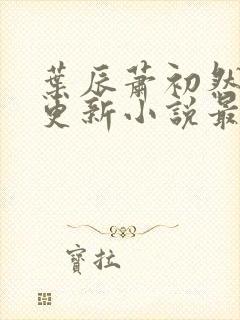 葉辰蕭初然
更新小說最
寶拉